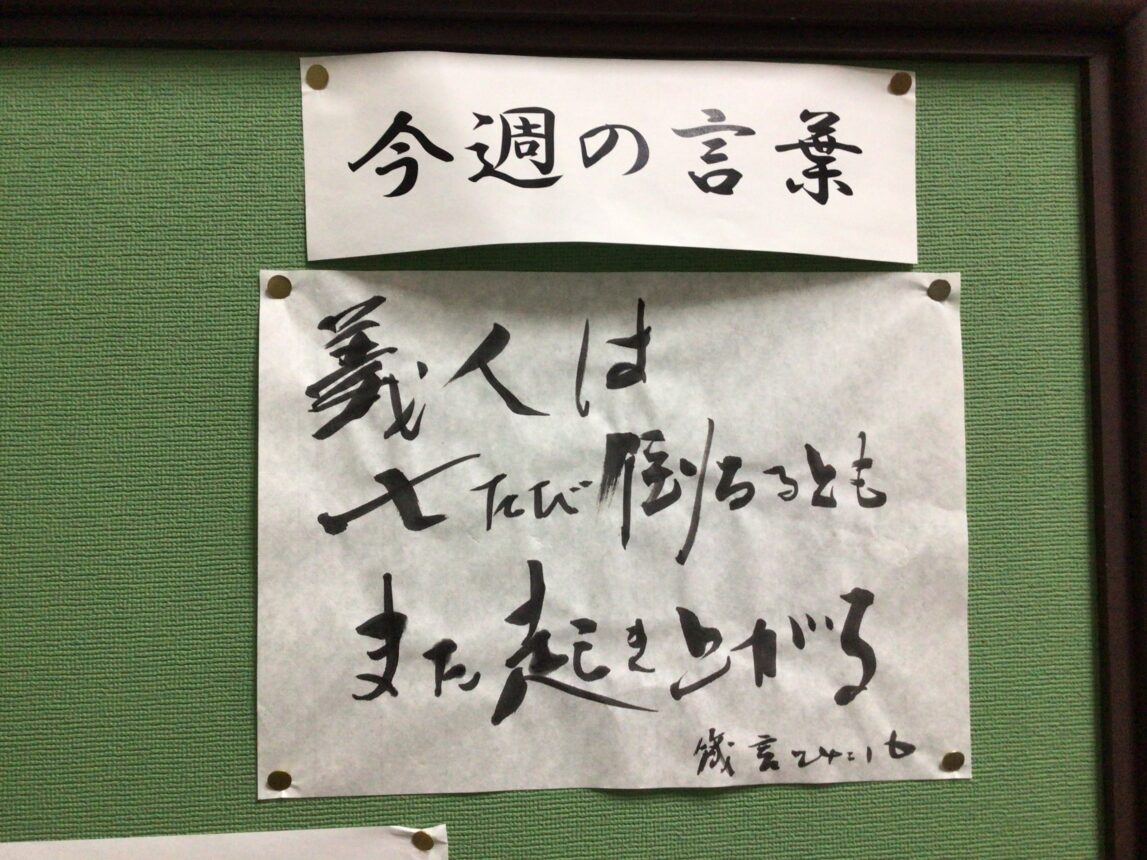 今週の言葉
義人は
七たび倒るるとも
また起き上がる
箴言24:16